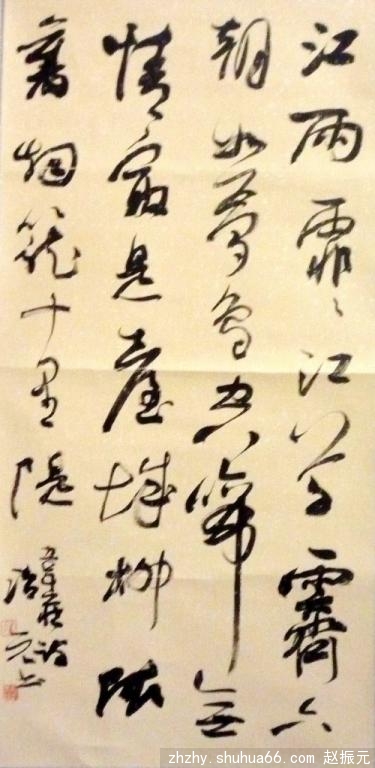 江雨霏〻江草霽六
朝如夢鸟空啼無
情最是臺城柳依
舊烟籠十里隄
zhzhy.shuhua66.com 赵振元